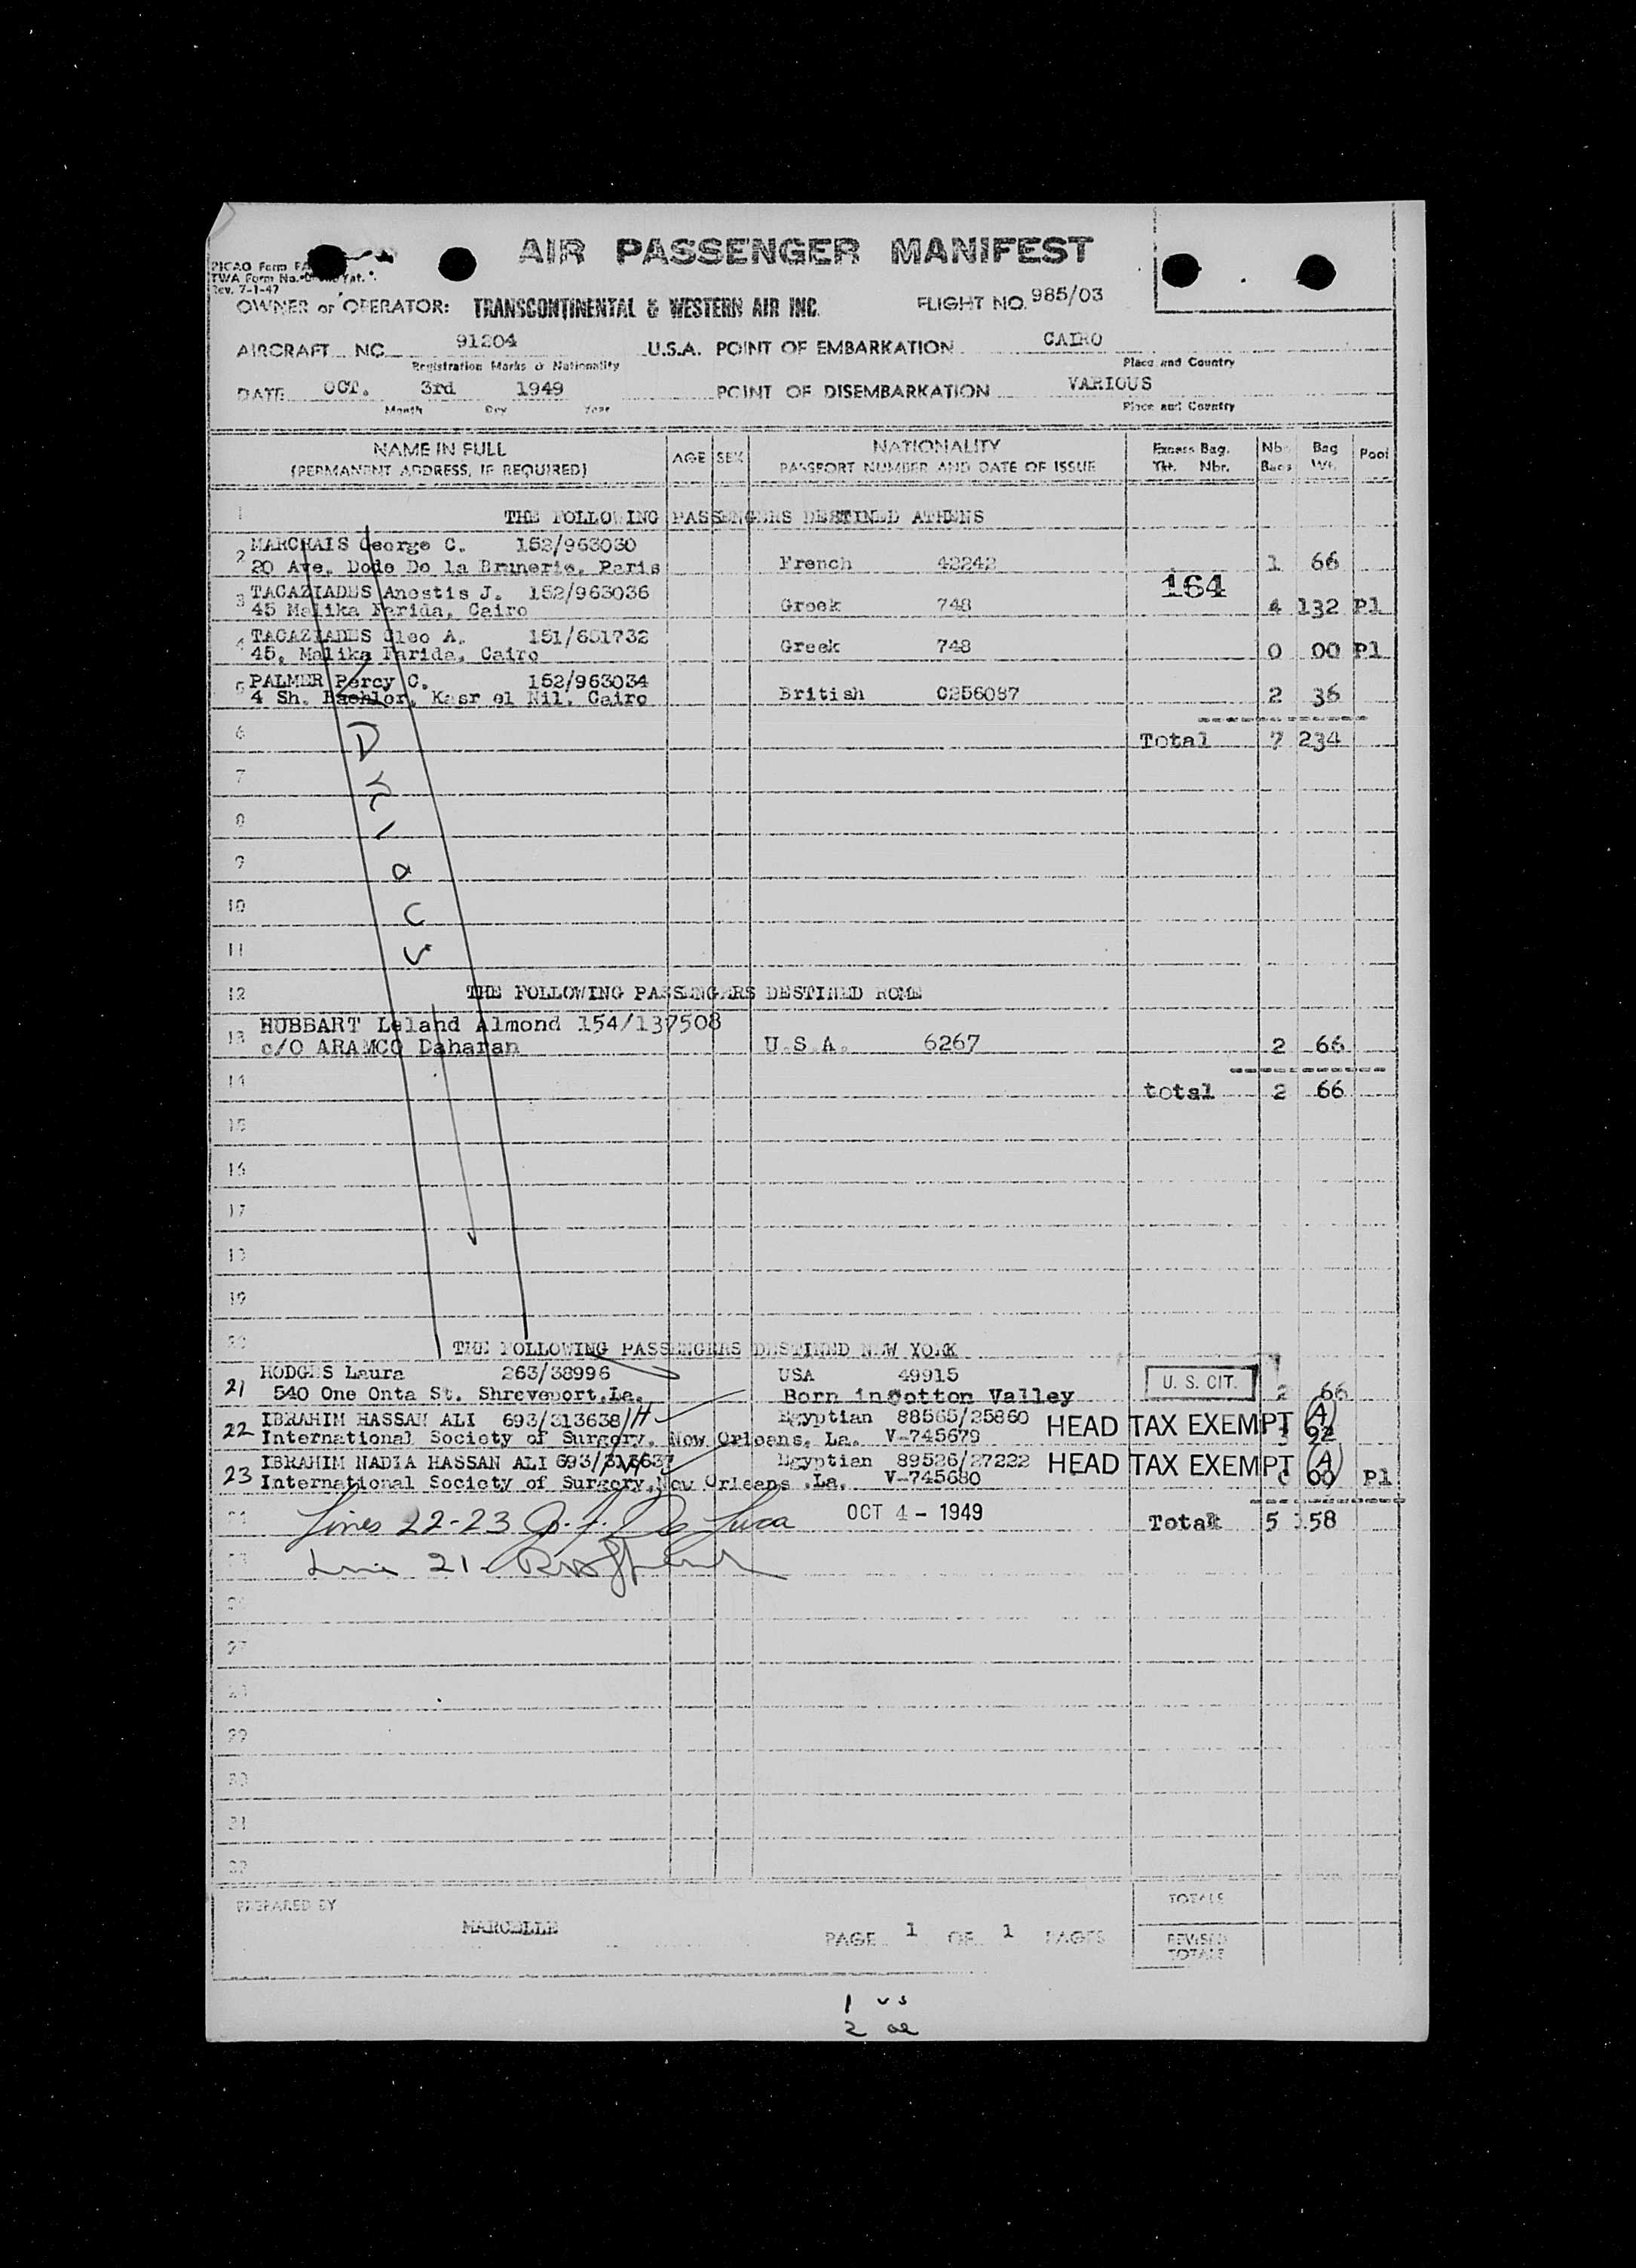 AIR PASSENGER MANIFEST
PICAO Form
TWA Form No.
Rev. 7-1-47
OWNER or OPERATOR: TRANSCONTINENTAL & WESTERN AIR INC. FLIGHT NO. 985/03
AIRCRAFT NC 91204 U.S.A. POINT OF EMBARKATION CAIRO
Registration Marks & Nationality Place and Country
DATE OCT. 3rd 1949 POINT OF DISEMBARKATION VARIOUS
Month Day Year Place and Country
NAME IN FULL AGE SEX NATIONALITY Excess Bag. Nbr. Bag Pool
(PERMANENT ADDRESS, IF REQUIRED) PASSPORT NUMBER AND DATE OF ISSUE Tkt. Nbr. Bags Wt.
1 THE FOLLOWING PASSENGERS DESTINED ATHENS
2 MARCHAIS George C. 152/963030
20 Ave. Dode De la Brunerie, Paris French 42242 1 66
164
3 TACAZIADES Anostis J. 152/963036
45 Malika Farida, Cairo Greek 748 4 132 Pl
4 TACAZIADES Cleo A. 151/651732
45, Malika Farida, Cairo Greek 748 0 00 Pl
5 PALMER Percy C. 152/963034
4 Sh. Baehlor, Kasr el Nil, Cairo British C256087 2 36
6 Total 7 234
7
8
9
10
11
12 THE FOLLOWING PASSENGERS DESTINED ROME
13 HUBBART Leland Almond 154/137508
c/O ARAMCO Daharan U.S.A. 6267 2 66
14 total 2 66
15
16
17
18
19
20 THE FOLLOWING PASSENGERS DESTINED NEW YORK
21 HODGES Laura 263/38996 USA 49915 U. S. CIT.
540 One Onta St. Shreveport,La. Born in Cotton Valley 2 66
22 IBRAHIM HASSAN ALI 693/313638 Egyptian 88565/25860 HEAD TAX EXEMPT (A)
International Society of Surgery, New Orleans, La. V-745679 3 92
23 IBRAHIM NADIA HASSAN ALI 693/313637 Egyptian 89526/27222 HEAD TAX EXEMPT (A)
International Society of Surgery, New Orleans ,La. V-745680 0 00 Pl
24 Lines 22-23 De Luca OCT 4 - 1949 Total 5 158
25 Line 21
26
27
28
29
30
31
32
PREPARED BY TOTALS
MARCELLE PAGE 1 OF 1 PAGES REVISED
TOTALS
1 us
2 al